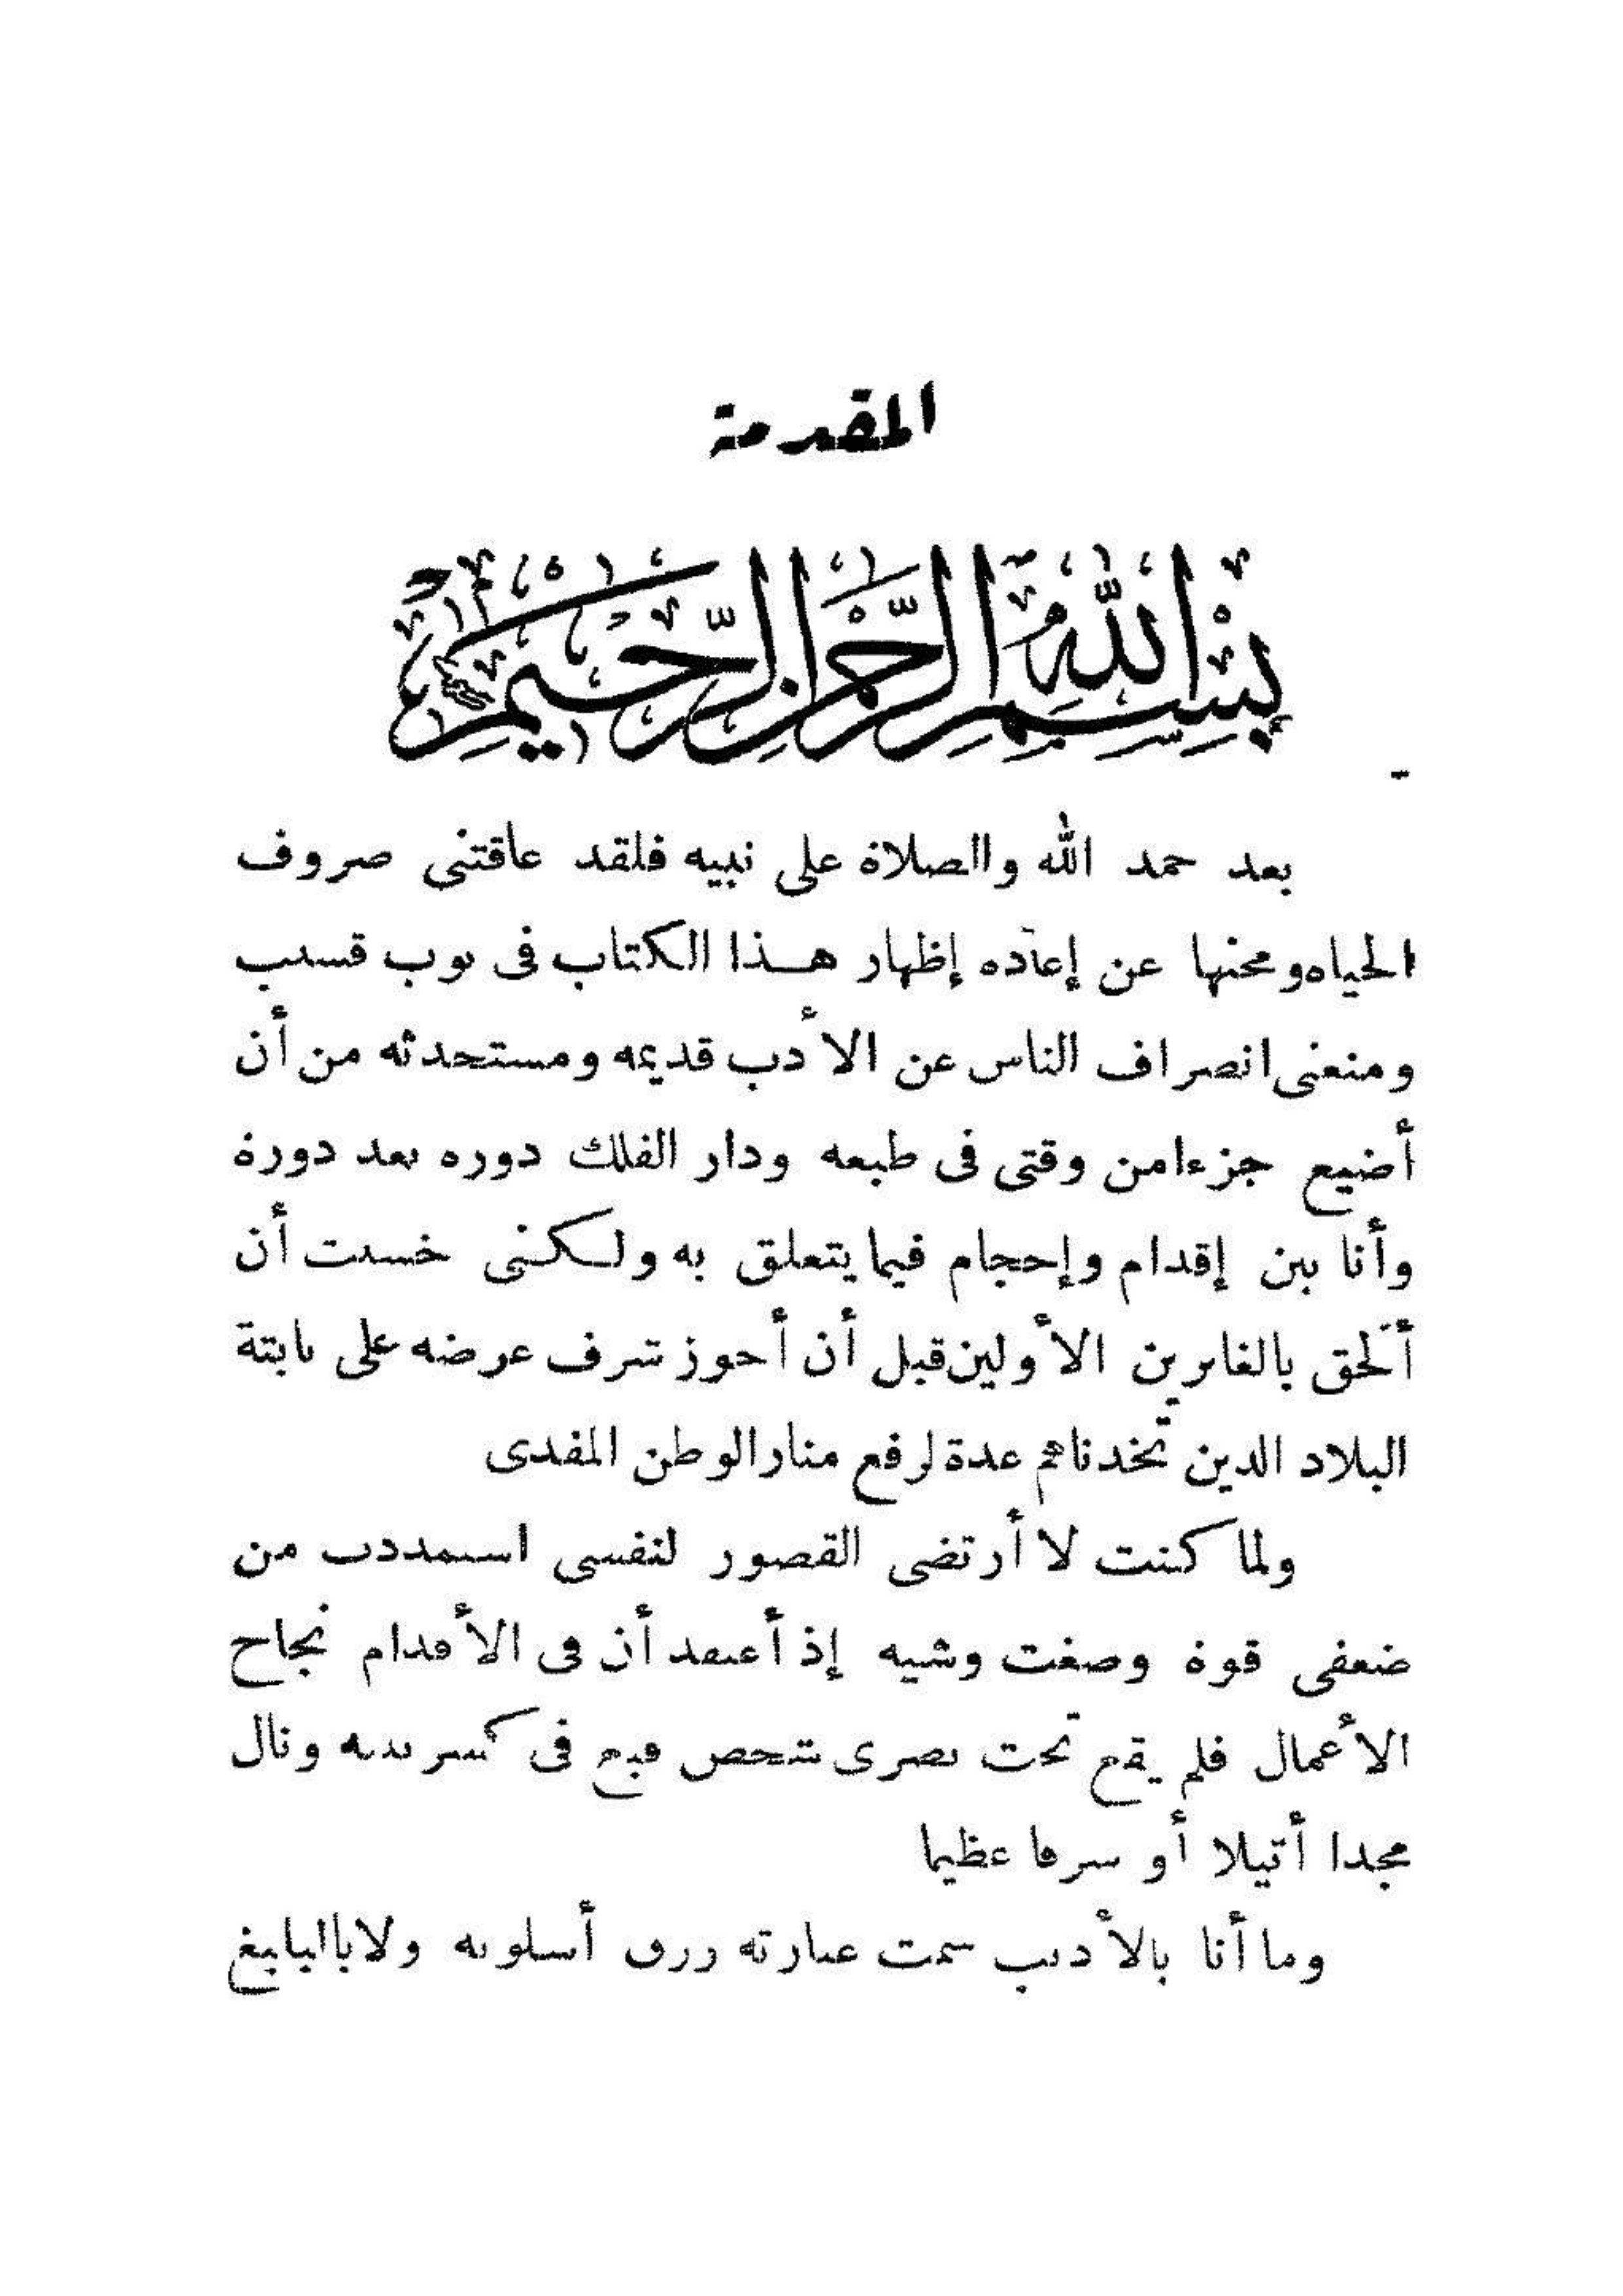 المقدمة
بسم الله الرحمن الرحيم
بعد حمد الله والصلاة على نبيه فلقد عاقتنى صروف
الحياه ومحنها عن إعاده إظهار هذا الكتاب فى ثوب قشيب
ومنعنى انصراف الناس عن الأدب قديمه ومستحدثه من أن
أضيع جزءا من وقتى فى طبعه ودار الفلك دوره بعد دورة
وأنا بين إقدام وإحجام فيما يتعلق به ولكنى خشيت أن
ألحق بالغابرين الأولين قبل أن أحوز شرف عرضه على نابتة
البلاد الذين تخذناهم عدة لرفع منار الوطن المفدى
ولما كنت لا أرتضى القصور لنفسى استمددت من
ضعفى قوة وصغت وشيه إذ أعتقد أن فى الأقدام نجاح
الأعمال فلم يقع تحت بصرى شخص قبع فى كسر بيته ونال
مجدا أثيلا أو شرفا عظيما
وما أنا بالأديب سمت عبارته ورق أسلوبه ولا بالبليغ